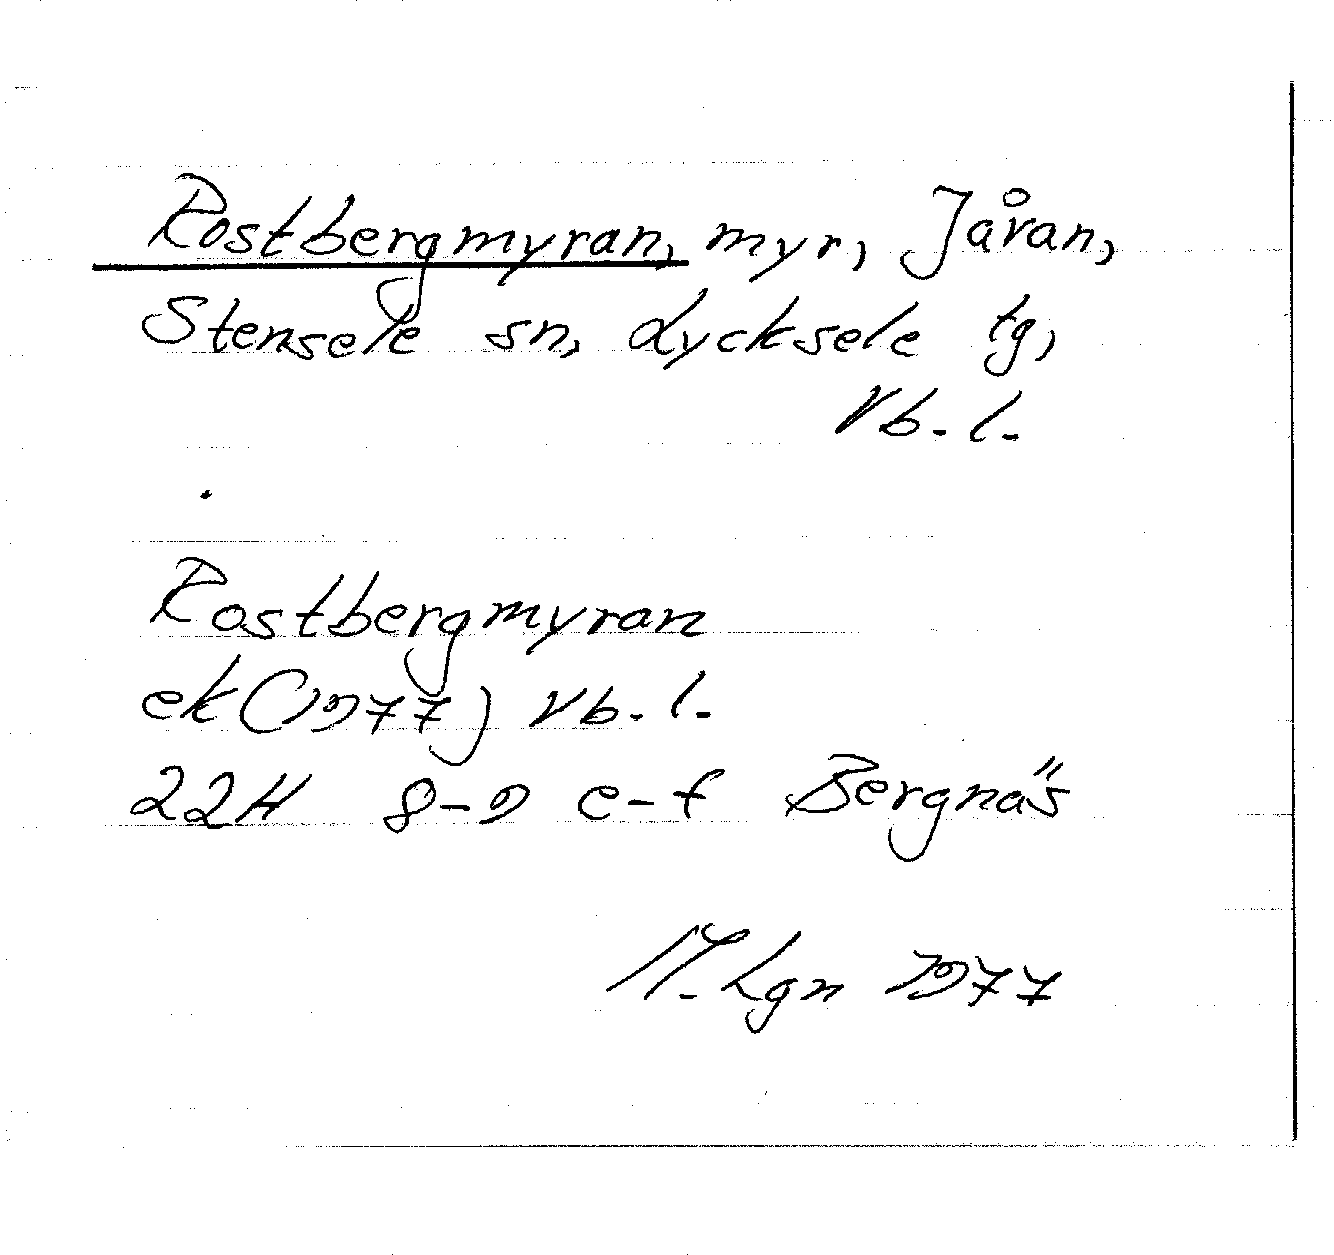 Rostbergmyran, myr, Jåran,
Stensele sn, Lycksele tg,
Vb. l.
Rostbergmyran
ek (1977) Vb. l.
22H 8-9 e-f Bergnäs
M. Lgn 1977